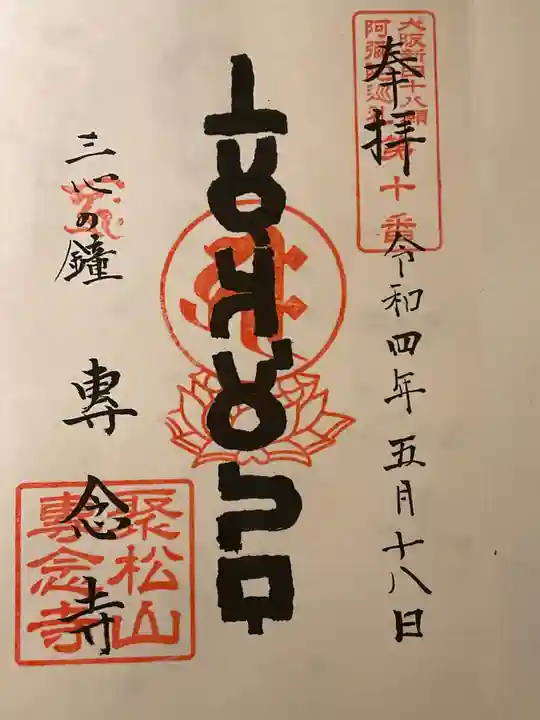 大阪新四十八願
阿彌陀巡礼 第十番
奉拝
令和四年五月十八日
三心の鐘
専念寺
聚松山
專念寺